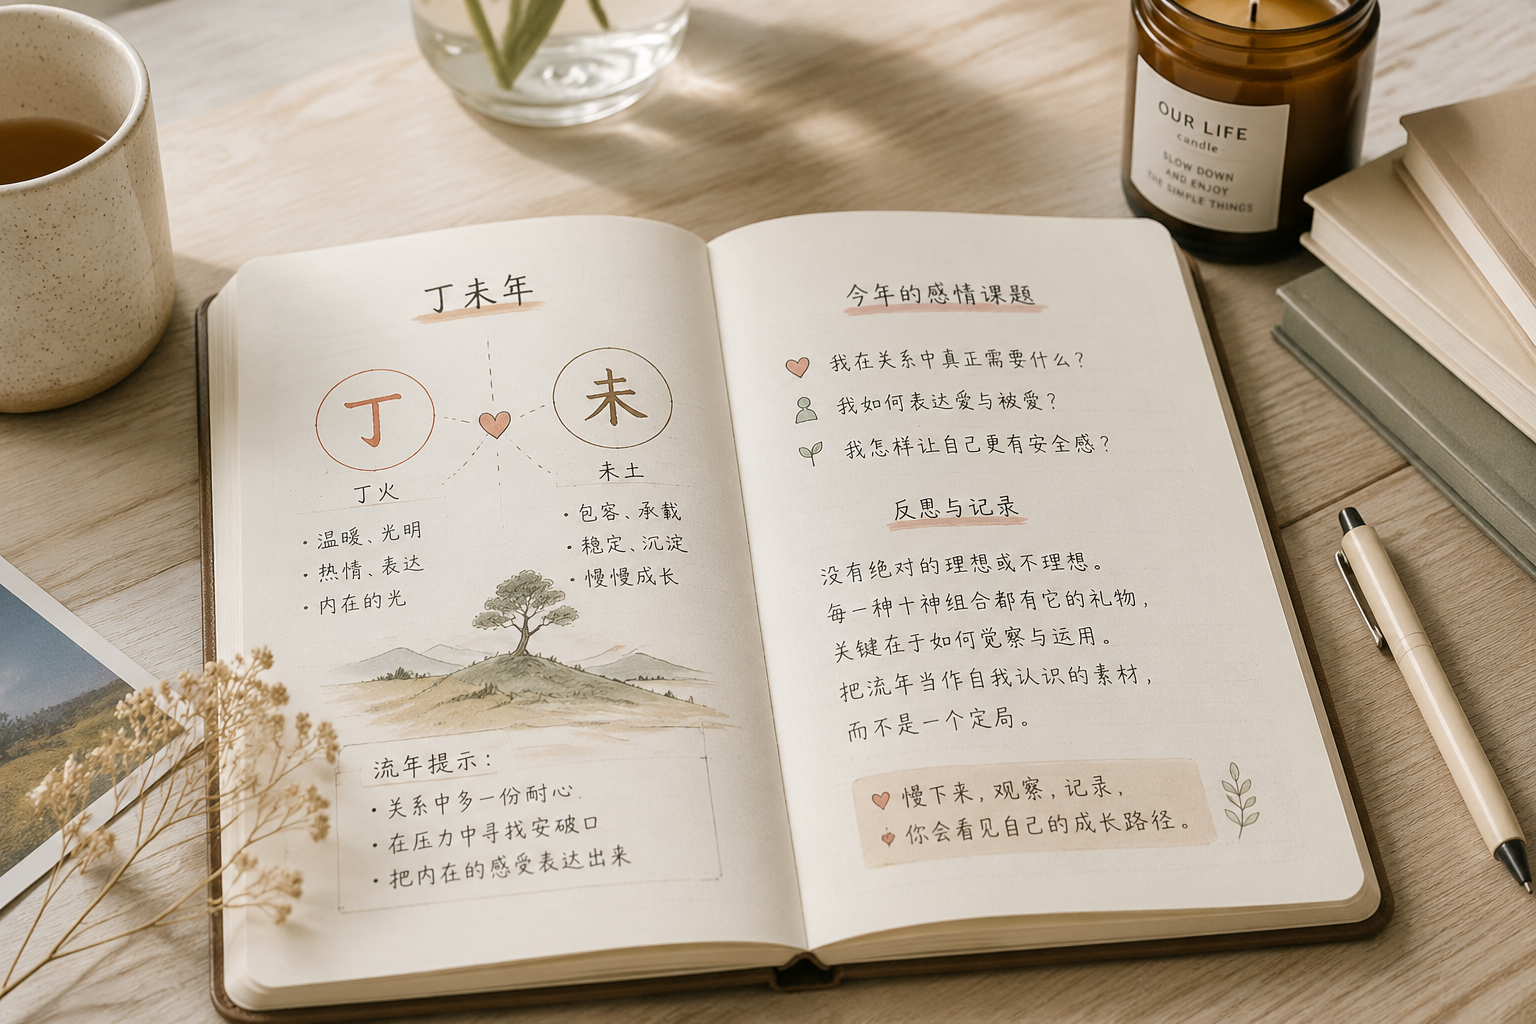 OUR LIFE
candle
SLOW DOWN
AND ENJOY
THE SIMPLE THINGS
丁未年
丁
未
丁火
未土
· 温暖、光明
· 热情、表达
· 内在的光
· 包容、承载
· 稳定、沉淀
· 慢慢成长
流年提示：
· 关系中多一份耐心
· 在压力中寻找安破口
· 把内在的感受表达出来
今年的感情课题
我在关系中真正需要什么？
我如何表达爱与被爱？
我怎样让自己更有安全感？
反思与记录
没有绝对的理想或不理想。
每一种十神组合都有它的礼物，
关键在于如何觉察与运用。
把流年当作自我认识的素材，
而不是一个定局。
慢下来，观察，记录，
你会看见自己的成长路径。